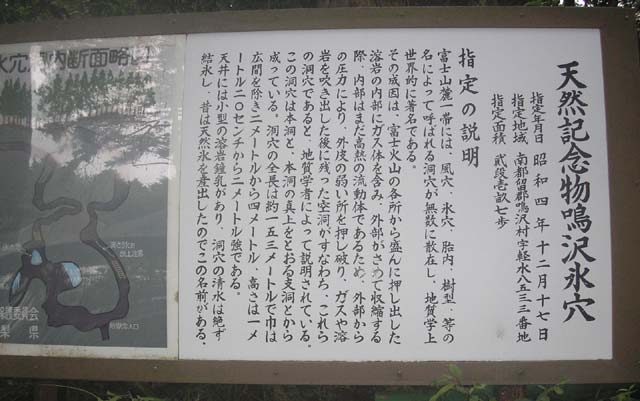 天然記念物鳴沢氷穴
指定年月日　昭和四年十二月十七日
指定地域　南都留郡鳴沢村字軽水八五三三番地
指定面積　弐段壱畝七歩
指定の説明
富士山麓一帯には、風穴、氷穴、胎内、樹型、等の
名によって呼ばれる洞穴が無数に散在し、地質学上
世界的に著名である。
その成因は、富士火山の各所から盛んに押し出した
溶岩の内部にガス体を含み、外部がさめて収縮する
際、内部はまだ高熱の流動体であるため、外部から
の圧力により、外皮の弱い所を押し破り、ガスや溶
岩を吹き出した後に残った空洞がすなわち、これら
の洞穴であると、地質学者によって説明されている。
この洞穴は本洞と、本洞の真上をとおる支洞とから
成っている。洞穴の全長は約一五三メートルで巾は
広間を除き二メートルから四メートル、高さは一メ
ートル二〇センチから二メートル強である。
天井には小型の溶岩鍾乳があり、洞穴の清水は絶ず
結氷し、昔は天然氷を産出したのでこの名前がある。
氷穴洞内断面略図
委員会
梨県